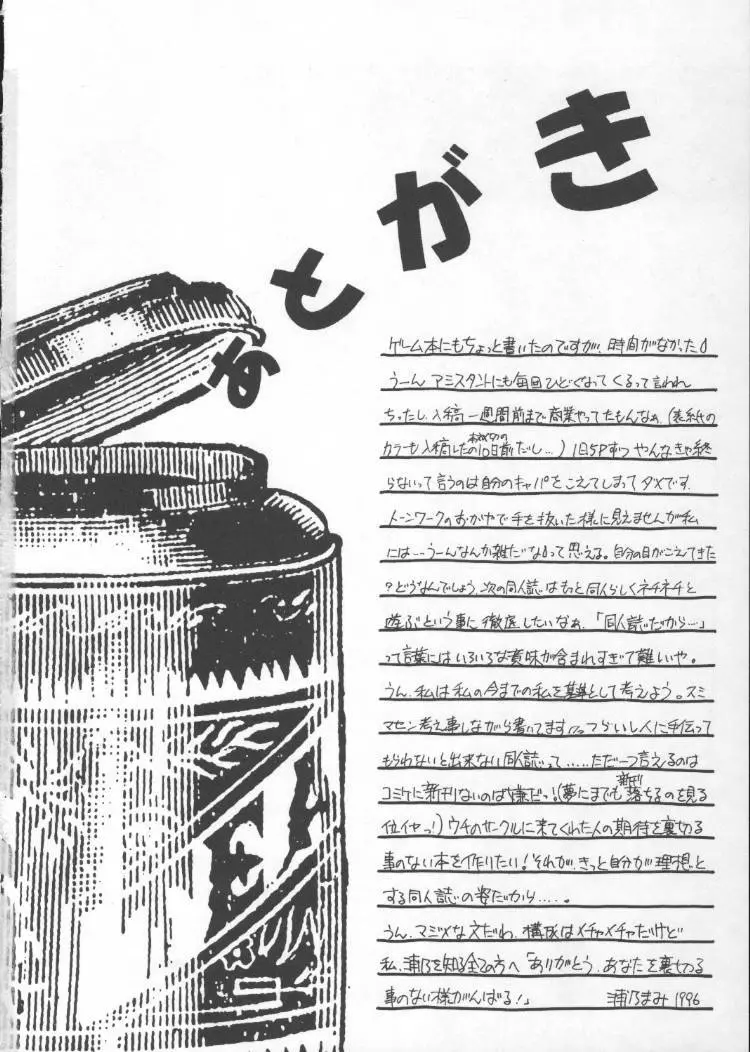 あとがき
ゲーム本にもちょっと書いたのですが、時間がなかった
うーん アシスタントにも毎回ひどくなってくるって言われ
ちったし、入稿一週間前まで商業やってたもんなぁ、(表紙の
カラーも入稿したの10日前だし…) 1日5Pずつ やんなきゃ終
らないって言うのは自分のキャパをこえてしまってダメです。
トーンワークのおかげで手を抜いた様に見えませんが私
には…うーんなんか雑だなって思える。自分の目がこえてきた
?どうなんでしょう、次の同人誌はもっと同人らしくネチネチと
遊ぶという事に徹底したいなぁ、「同人誌だから…」
って言葉にはいろいろな意味が含まれすぎて難しいや。
うん、私は私の今までの私を基準として考えよう。スミ
マセン考え事しながら書いてます つらいし人に手伝って
もらわないと出来ない同人誌って……ただ一つ言えるのは
コミケに新刊ないのは嫌だっ!(夢にまでも新刊落ちるのを見る
位イヤっ!)ウチのサークルに来てくれた人の期待を裏切る
事のない本を作りたい!それが、きっと自分が理想と
する同人誌の姿だから……。
うん、マジメな文だわ、構成はメチャメチャだけど
私、浦乃を知る全ての方へ「ありがとう、あなたを裏切る
事のない様がんばる!」 浦乃まみ 1996